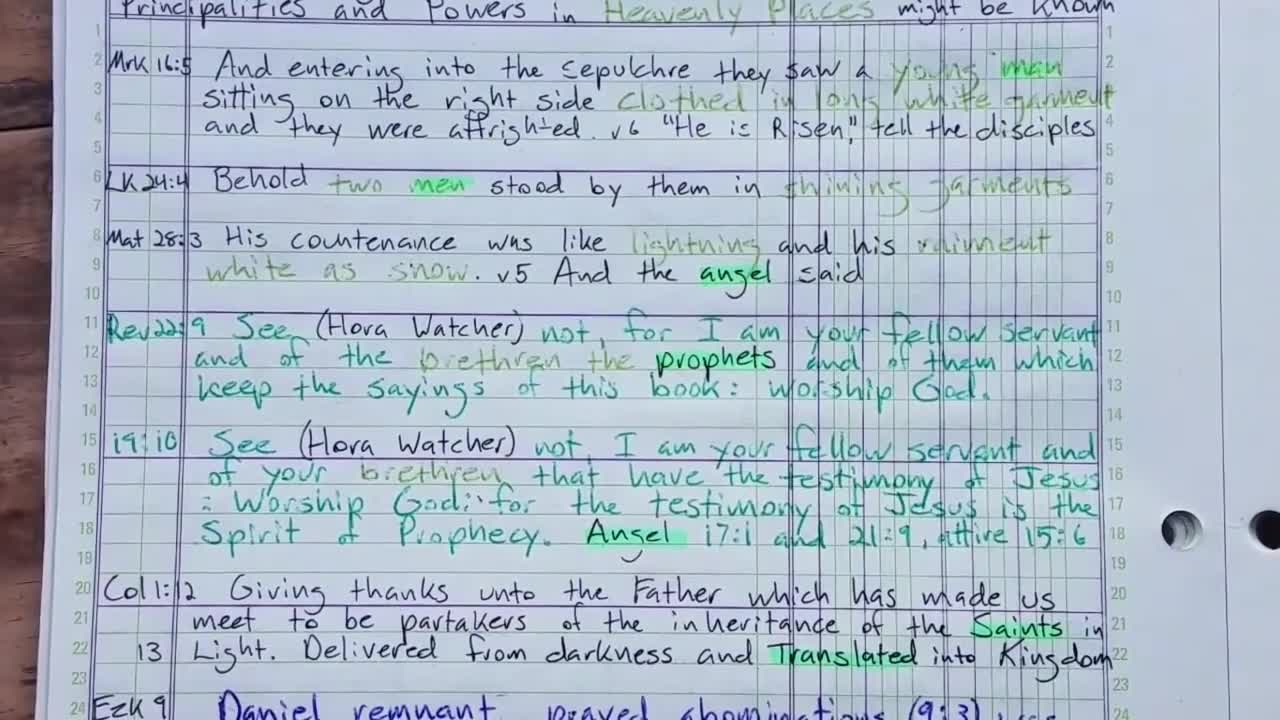 Principalities and Powers in Heavenly Places might be known
1 1
2 Mrk 16:5 And entering into the sepulchre they saw a young man 2
3 sitting on the right side clothed in long white garment 3
4 and they were affrighted. v6 "He is Risen," tell the disciples 4
5 5
6 LK 24:4 Behold two men stood by them in shining garments 6
7 7
8 Mat 28:3 His countenance was like lightning and his raiment 8
9 white as snow. v5 And the angel said 9
10 10
11 Rev 22:9 See (Hora Watcher) not, for I am your fellow servant 11
12 and of the brethren the prophets and of them which 12
13 keep the sayings of this book: worship God. 13
14 14
15 19:10 See (Hora Watcher) not, I am your fellow servant and 15
16 of your brethren that have the testimony of Jesus 16
17 : Worship God: for the testimony of Jesus is the 17
18 Spirit of Prophecy. Angel 17:1 and 21:9, attire 15:6 18
19 19
20 Col 1:12 Giving thanks unto the Father which has made us 20
21 meet to be partakers of the inheritance of the Saints in 21
22 13 Light. Delivered from darkness and Translated into Kingdom 22
23 23
24 Ezk 9 Daniel remnant, prayed abominations (9:3) 24